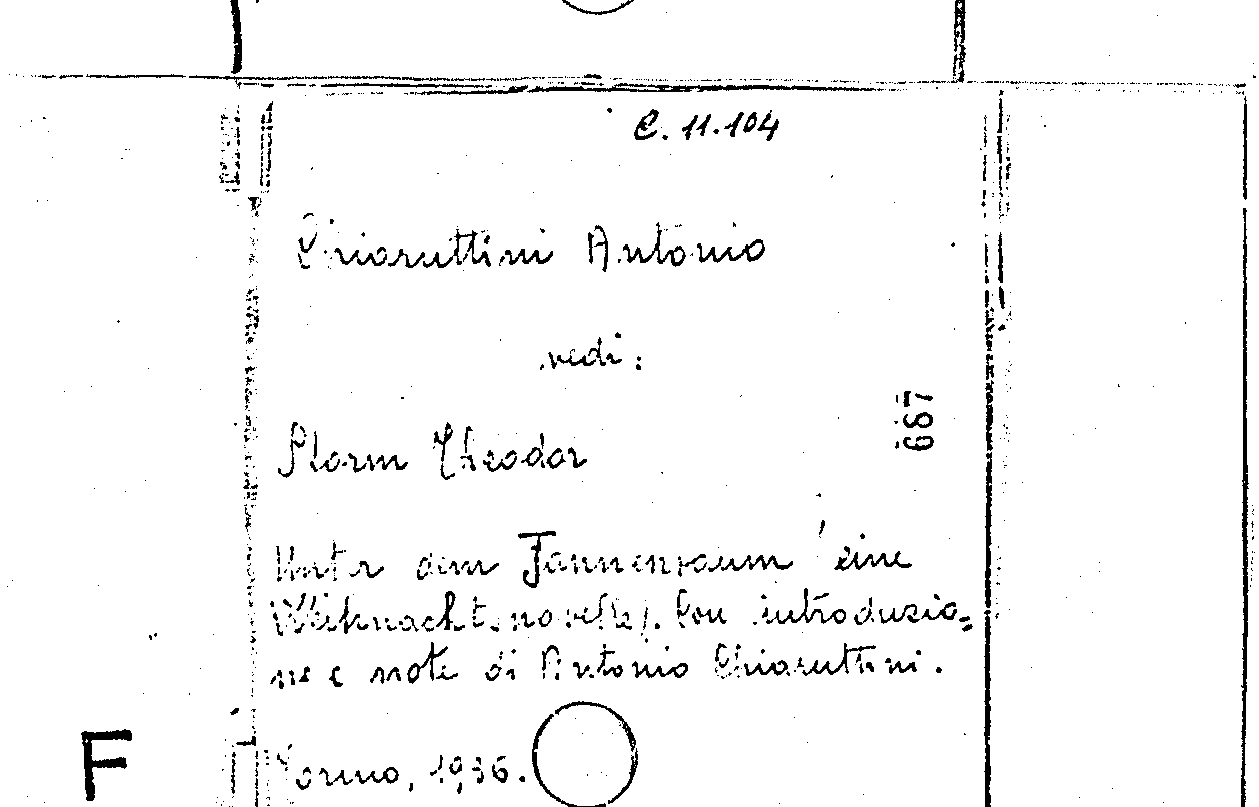 C. 11.104
Chiaruttini Antonio
vedi:
667
Storm Theodor
Unter dem Tannenbaum (eine
Weihnachtsnovelle). Con introduzio=
ne e note di Antonio Chiaruttini.
Torino, 1936.
F